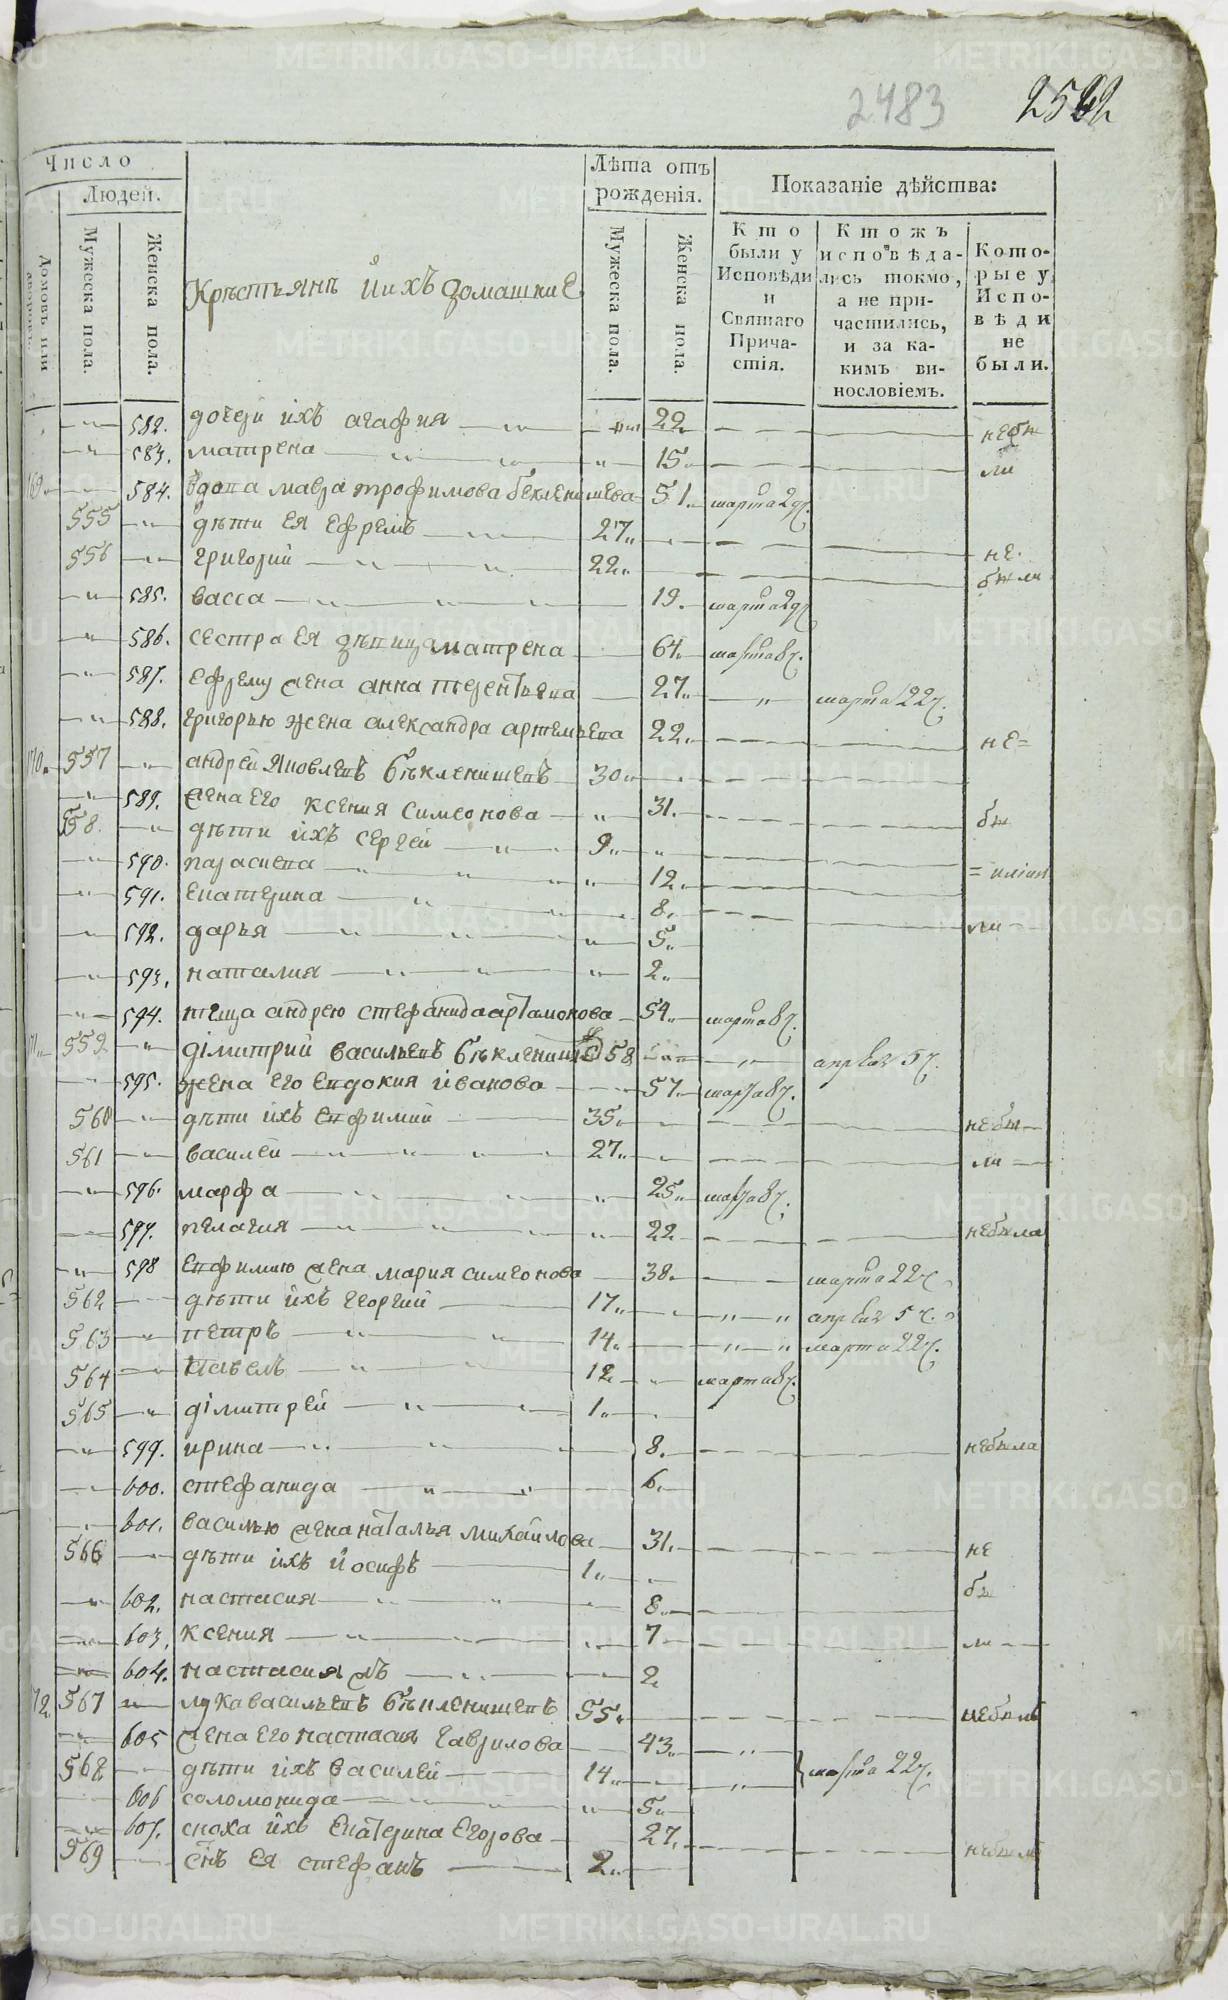 2483 2562
Число
Людей.
Домовъ или
Мужеска пола.
Женска пола.
Крѣстьянѣ и ихъ домашние
Лѣта отъ рожденія.
Мужеска пола.
Женска пола.
Показаніе дѣйства:
Кто были у Исповѣди и Святаго Причастія.
Кто жъ исповѣдались токмо, а не причастились, и за какимъ винословіемъ.
Которые у Исповѣди не были.
582. дочери ихъ агафия 22 небы
583. матрена 15 ли
169. 584. вдова мавра трофимова бекленищева 51 марта 29ч.
555 дѣти ея ефремъ 27 не
556 григорий 22 были
585. васса 19. марта 29ч
586. сестра ея дѣвица матрена 64 марта 8ч.
587. ефрему жена анна терентьева 27 марта 22ч.
588. григорью жена александра артемьева 22 не=
170. 557 андрей яковлевъ бѣкленищевъ 30
589. жена его ксения симеонова 31. бы
558. дѣти ихъ сергей 9
590. парасиева 12
591. екатерина 8
592. дарья 5 ли
593. наталия 2
594. теща андрею стефанида артамонова 54 марта 8ч.
171 559 дімитрий васильевъ бѣкленищевъ 58 апреля 5ч.
595. жена его евдокия иванова 57 марта 8ч.
560 дѣти ихъ евфимий 35 небы
561 василей 27 ли
596. марфа 25 марта 8ч.
597. пелагия 22 небыла
598 евфимию жена мария симеонова 38. марта 22ч
562 дѣти ихъ георгий 17 апреля 5ч.
563 петръ 14 марта 22ч.
564 павелъ 12 марта 8ч.
565 дімитрей 1
599. ирина 8. небыла
600. стефанида 6.
601. василью жена наталья михайлова 31. не
566 дѣти ихъ иосифъ 1
602. настасия 8 бы
603. ксения 7 ли
604. настасия 2
172 567 лука васильевъ бѣкленищевъ 55 небылъ
605 жена его настасия гаврилова 43
568 дѣти ихъ василей 14 марта 22ч.
606 соломонида 5
607. сноха ихъ екатерина егорова 27
569 снъ ея стефанъ 2